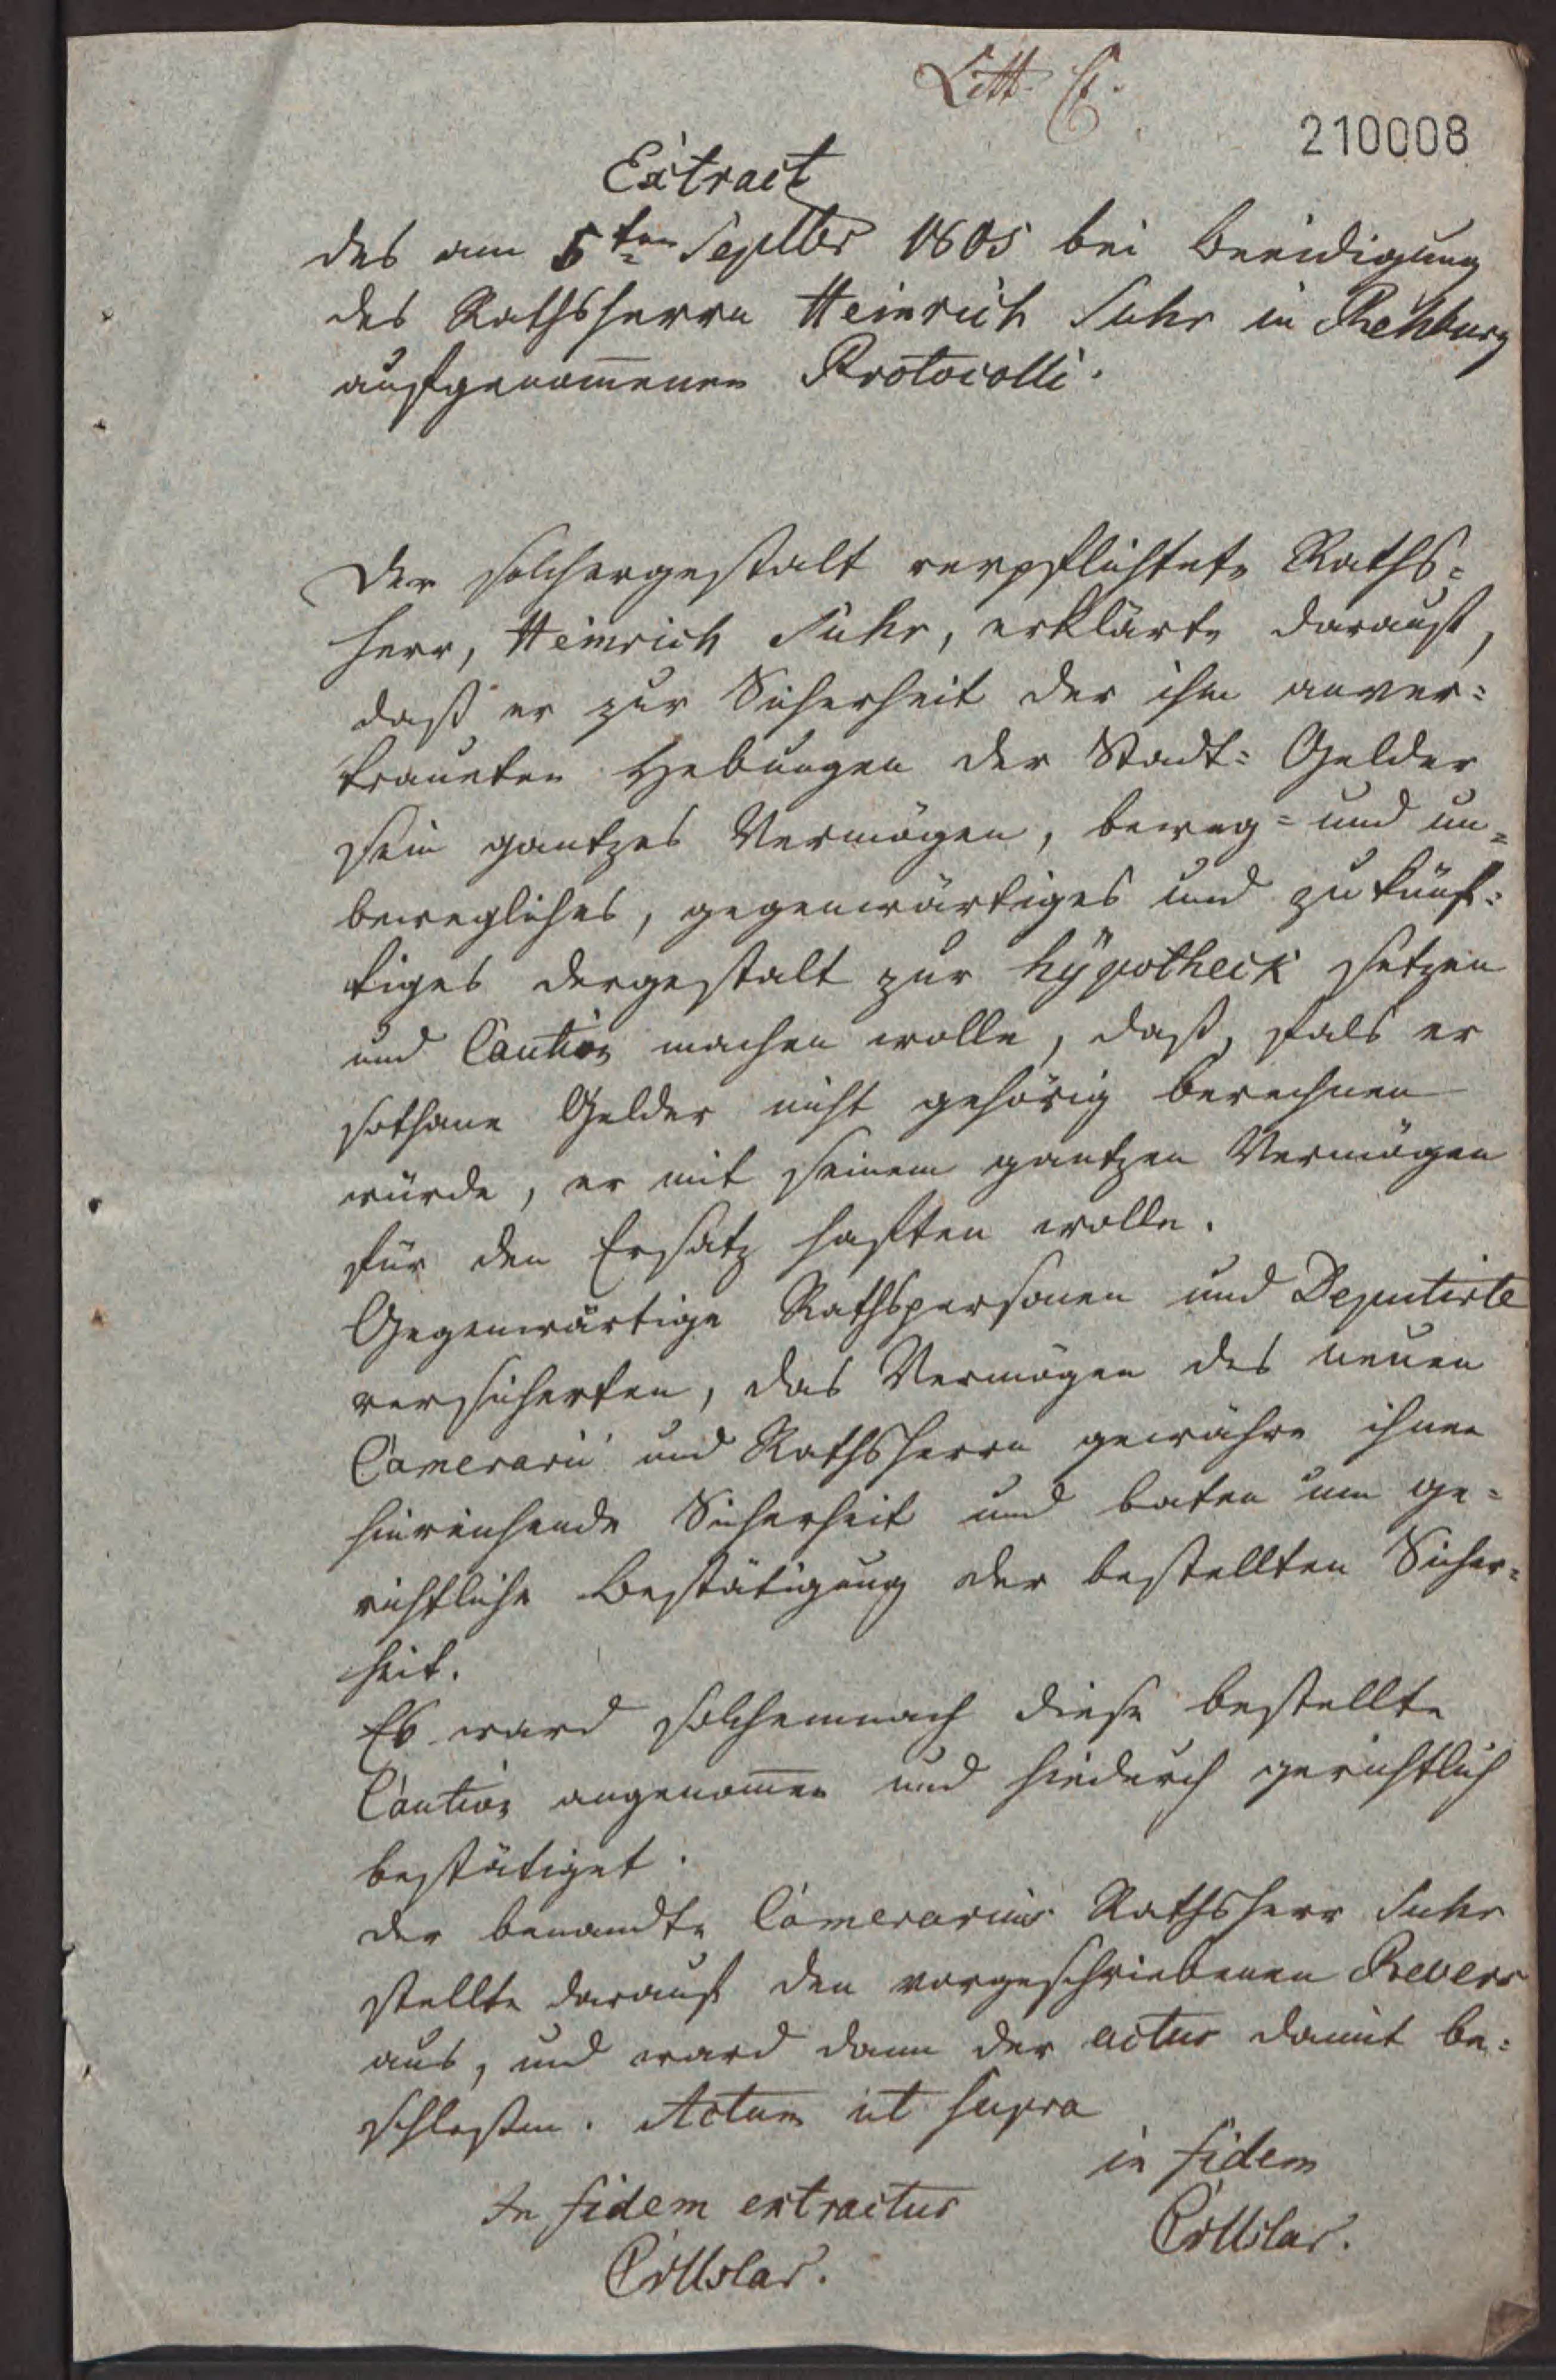 Litt. C.
210008
Extract
des am 5ten Septbr 1805 bei Beeidigung
des Rathsherrn Heinrich Suhr in Rehburg
aufgenom̅enen Protocolli.
Der solchergestalt verpflichtete Raths=
herr, Heinrich Suhr, erklärte darauf,
daß er zur Sicherheit der ihm anver=
traueten Hebungen der Stadt= Gelder
sein gantzes Vermögen, beweg= und un=
bewegliches, gegenwärtiges und zukünf=
tiges dergestalt zur hÿpotheck setzen
und Caution machen wolle, daß, fals er
sothane Gelder nicht gehörig berechnen
würde, er mit seinem gantzen Vermögen
für den Ersatz haften wolle.
Gegenwärtige Rathspersonen und Deputirte
versicherten, das Vermögen des neuen
Camerarii und Rathsherrn gewähre ihnen
hinreichende Sicherheit und baten um ge=
richtliche Bestätigung der bestellten Sicher=
heit.
Es ward solchemnach diese bestellte
Caution angenom̅en und hiedurch gerichtlich
bestätiget.
Der benandte Camerarius Rathsherr Suhr
stellte darauf den vorgeschriebenen Revers
aus, und ward dann der actus damit be=
schloßen. Actum ut supra
in fidem
In fidem extractus